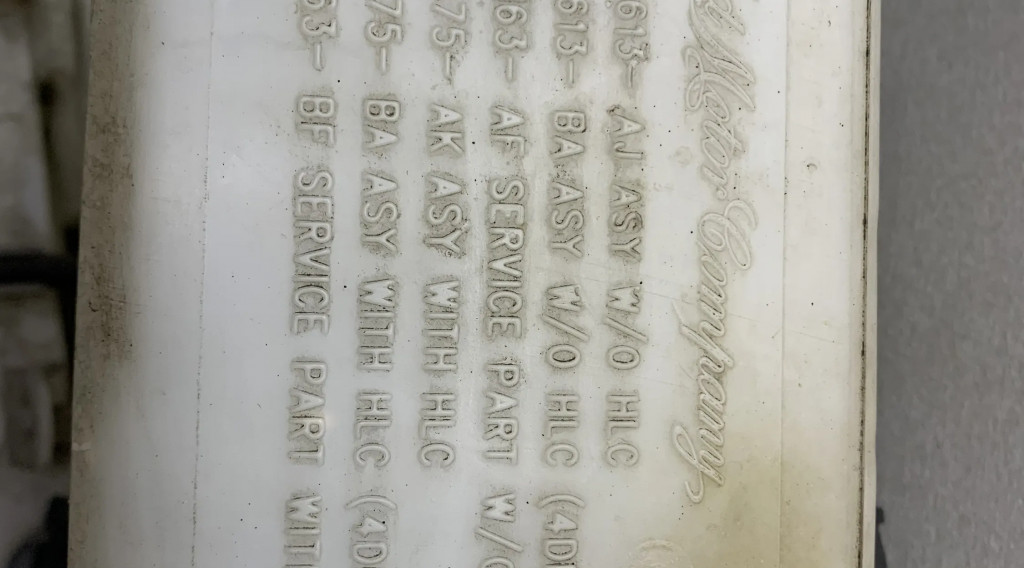 Motor Company
613- AJ ASY W/O HLC
613- BA ASY W/O HLC (4D
63- AF SERVICE PART W/O
75- AK ASY WITH HLC
75- BA ASY WITH HLC (4D
63- BF SERVICE PART WITH